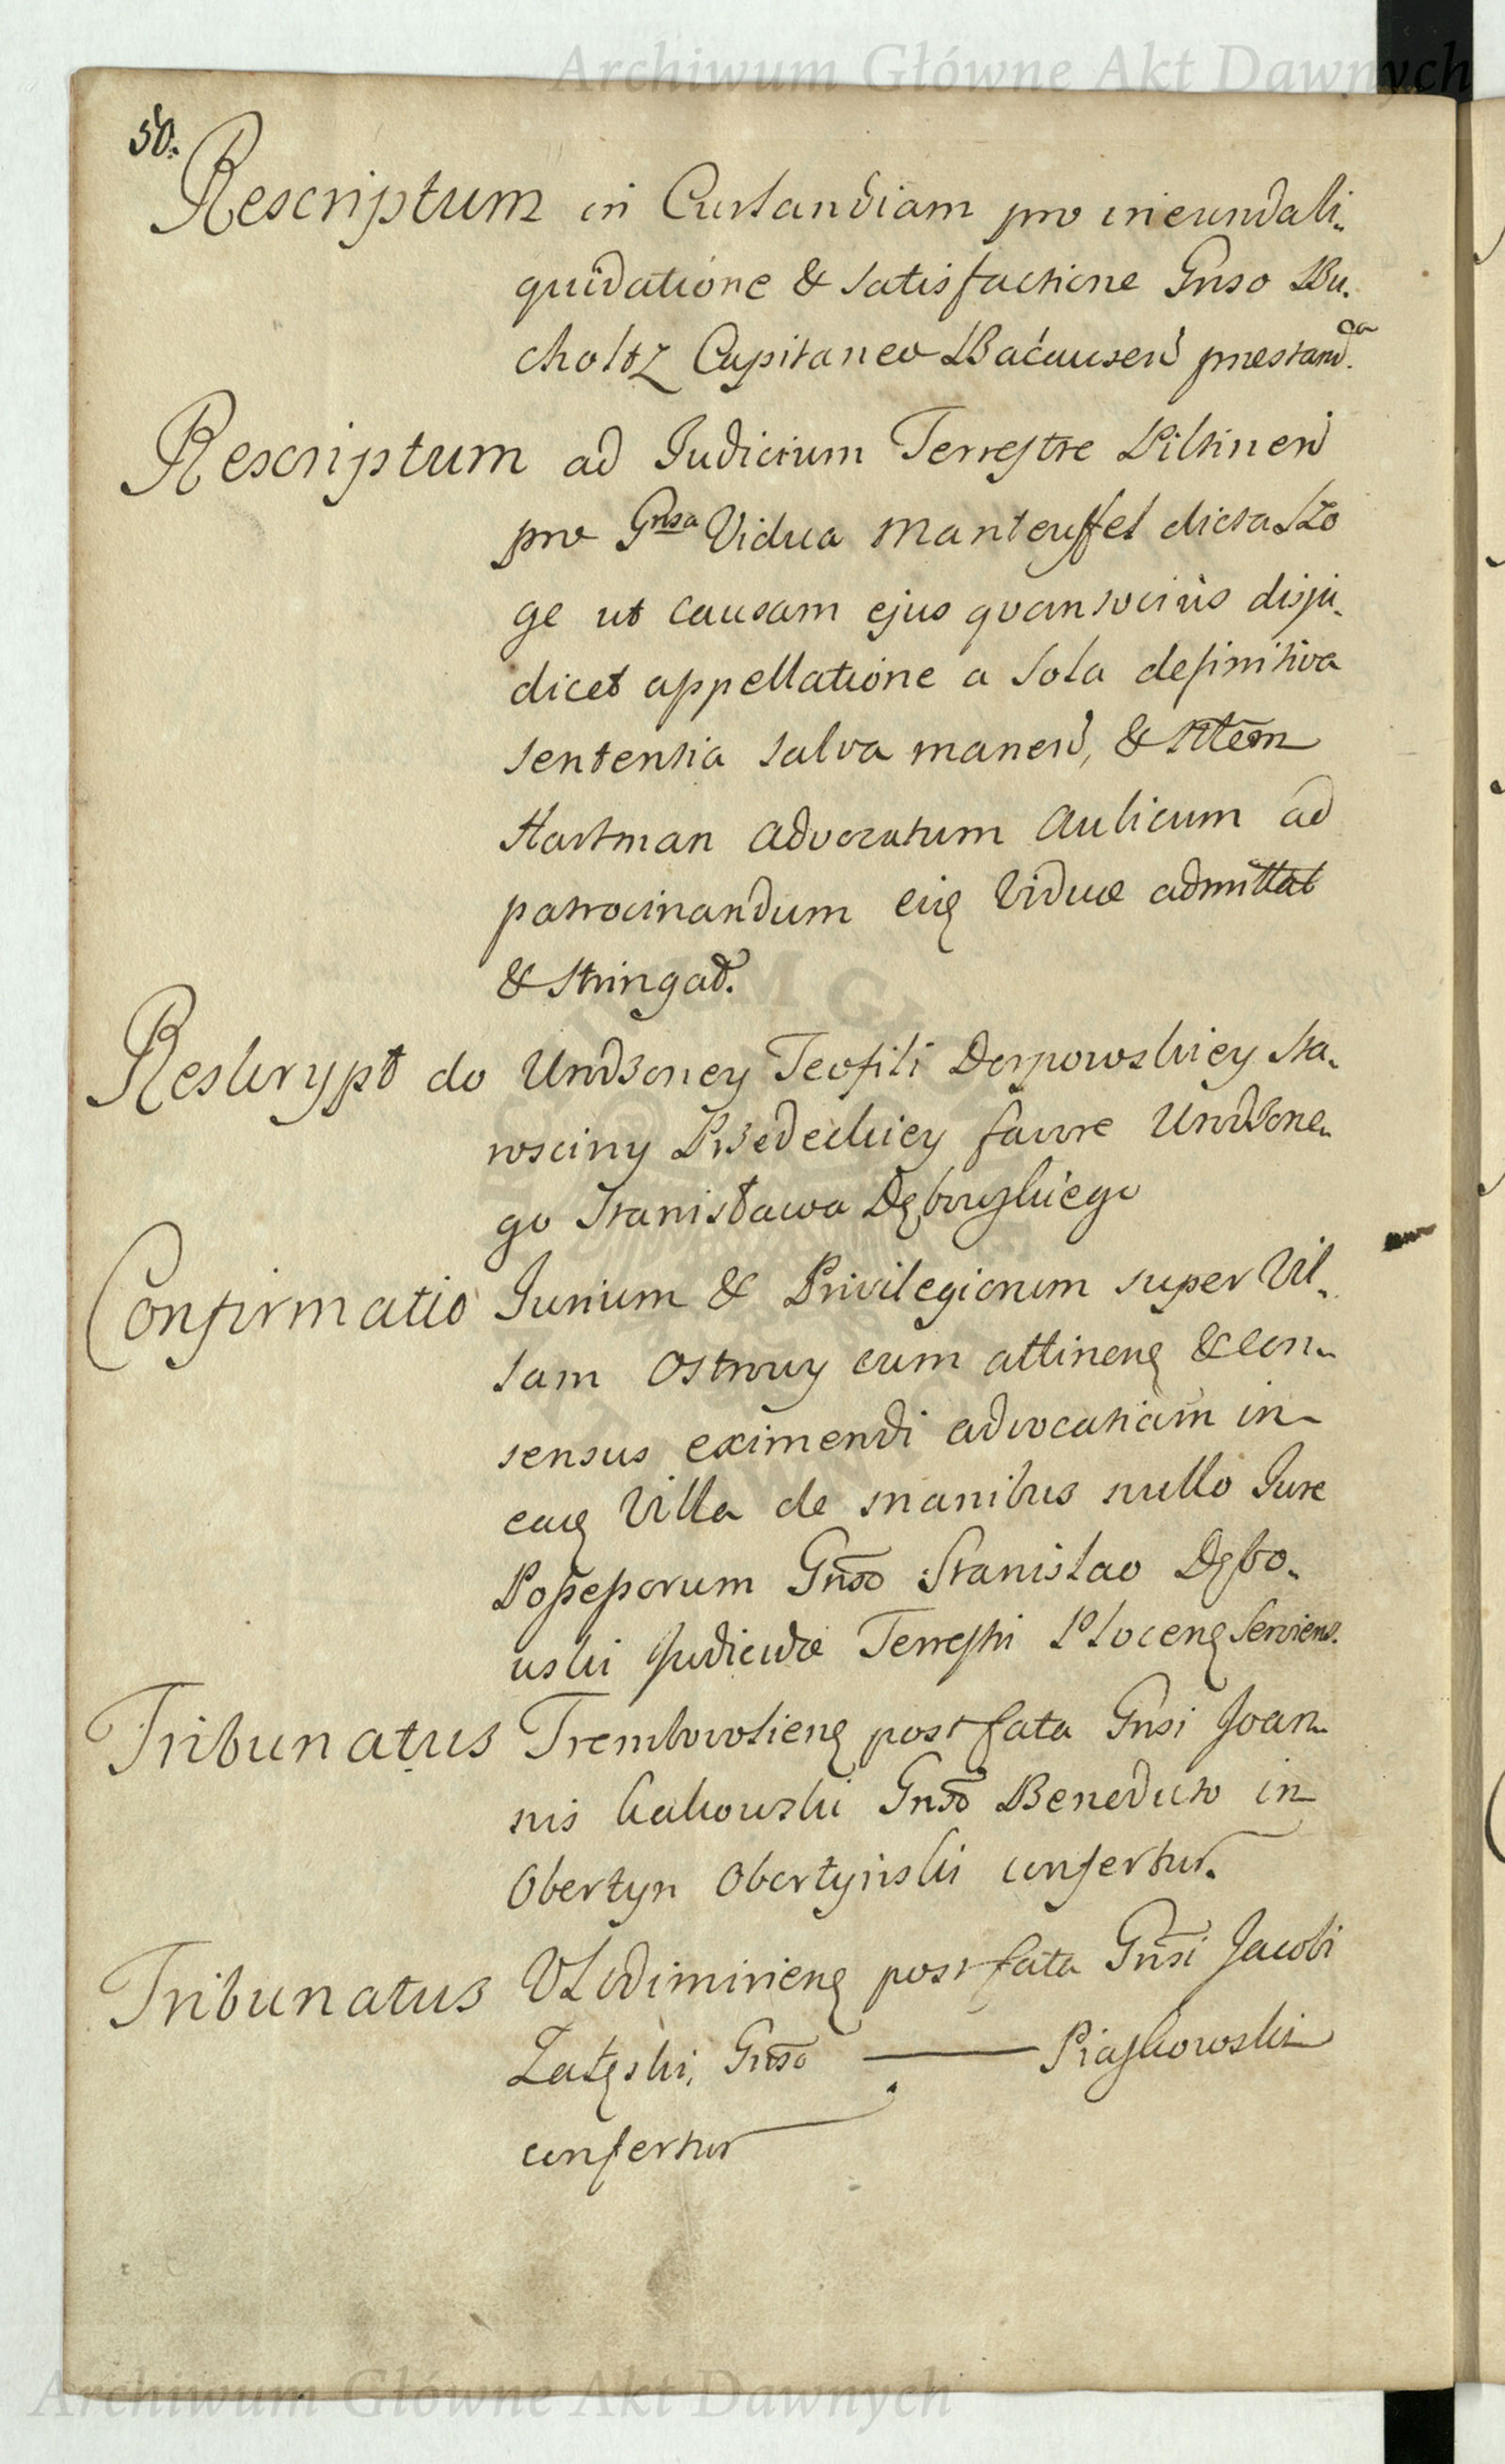 Archiwum Główne Akt Dawnych
50.
Rescriptum in Curlandiam pro ineunda li-
quidatione & satisfactione Gnso Bu-
choltz Capitaneo Bacausen praestand. da
Rescriptum ad Judicium Terrestre Piltinen
pro Gnsa Vidua Manteuffel dicta Szo
ge ut causam ejus quantocius diju-
dicet appellatione a sola definitiva
sententia salva manen, &
Hartman Advocatum Aulicum ad
patrocinandum eiq Viduae admittat
& stringat.
Reskrypt do Urodzoney Teofili Dorpowskiey Sta-
rosciny Przedeckiey favore Urodzone-
go Stanisława Dęboyskiego
Confirmatio Jurium & Privilegiorum super Vil-
lam Ostrowy cum attinenę & con-
sensus eximendi advocatiam in
eaq Villa de manibus nullo Jure
Possessorum Gnso Stanislao Dębo-
wski Judicidae Terrestri Plocenę Serviens.
Tribunatus Trembowolienę post fata Gnsi Joan-
nis Kakowski Gnso Benedicto in
Obertyn Obertyński confertur.
Tribunatus Vlodimirienę post fata Gnsi Jacobi
Załęski, Gnso ——— Piaskowski
confertur
Archiwum Główne Akt Dawnych